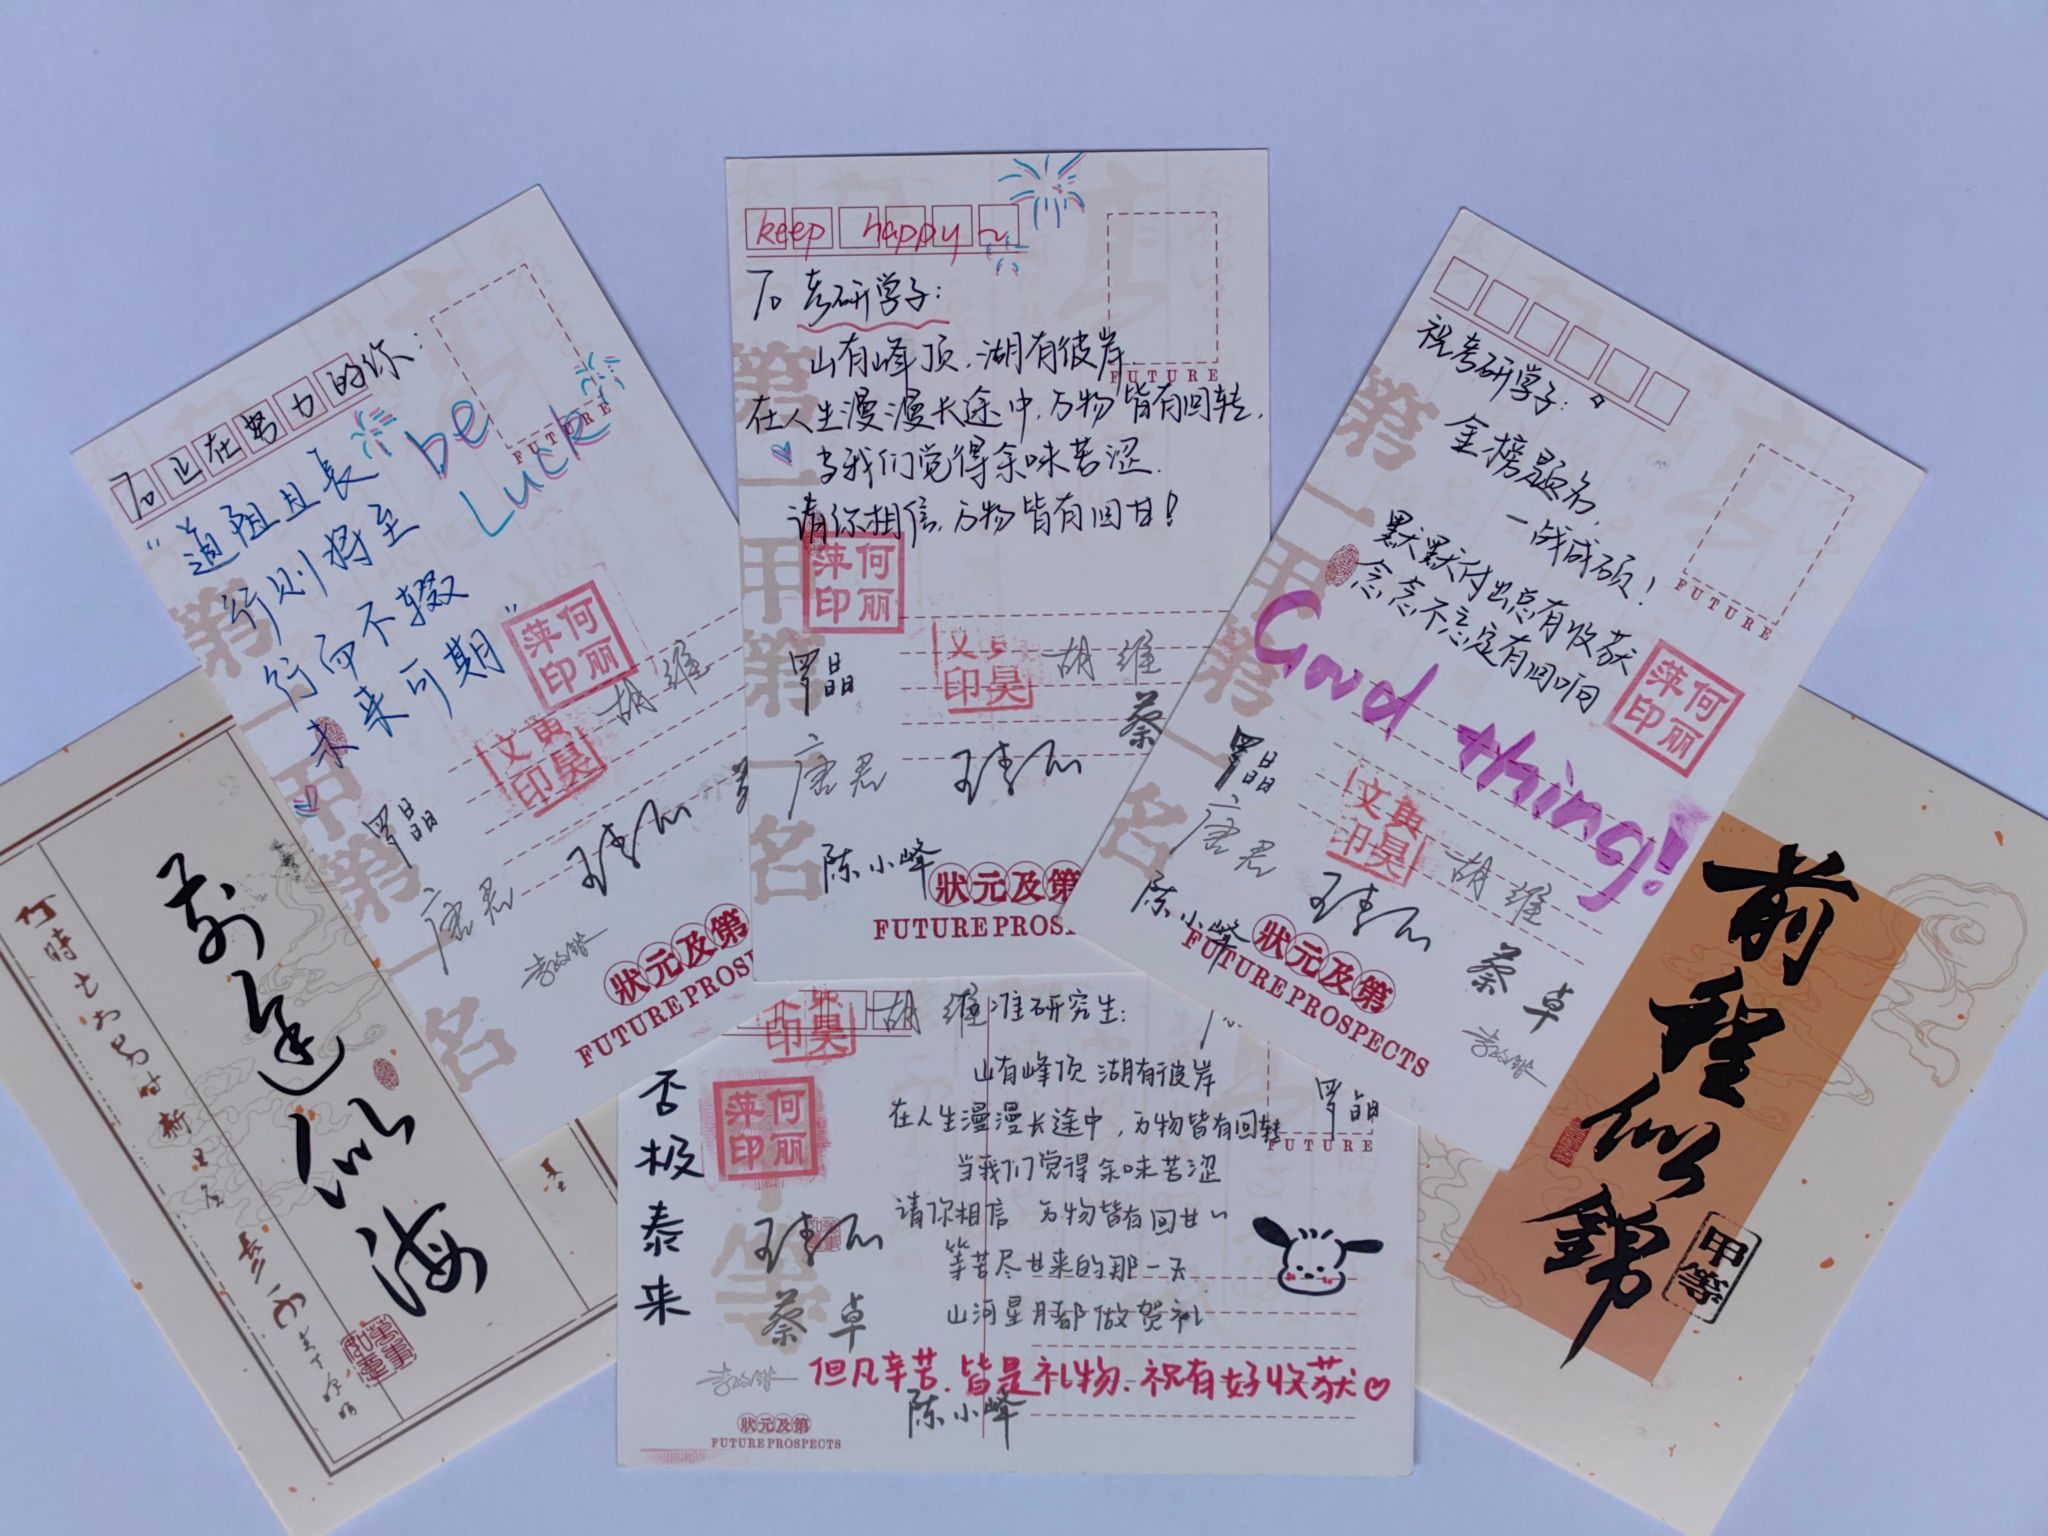 To 正在努力的你:
be
Luck
“道阻且長
行则将至
行而不辍
未来可期”
何丽萍印
黄昊文印
胡维
罗晶
唐君
FUTURE
狀元及第
FUTURE PROS
第一甲第一名
keep happy~
To 考研学子:
山有峰顶,湖有彼岸.
在人生漫漫长途中,万物皆有回转,
当我们觉得余味苦涩.
请你相信,万物皆有回甘!
FUTURE
何丽萍印
文昊印
胡维
罗晶
蔡
唐君
陈小峰
狀元及第
FUTURE PROS
第一甲第一名
祝考研学子:
金榜题名,
一战成硕!
默默付出总有收获
念念不忘定有回响
Good thing!
FUTURE
何丽萍印
黄昊文印
胡维
罗晶
唐君
蔡卓
陈小峰
狀元及第
FUTURE PROSPECTS
第一甲第一名
前途似海
前程似錦
甲等
胡维
准研究生:
山有峰顶 湖有彼岸
在人生漫漫长途中,万物皆有回转
当我们觉得余味苦涩
请你相信 万物皆有回甘~
等苦尽甘来的那一天
山河星月都做贺礼
否极泰来
何丽萍印
罗晶
FUTURE
蔡卓
但凡辛苦,皆是礼物,祝有好收获♡
陈小峰
狀元及第
FUTURE PROSPECTS